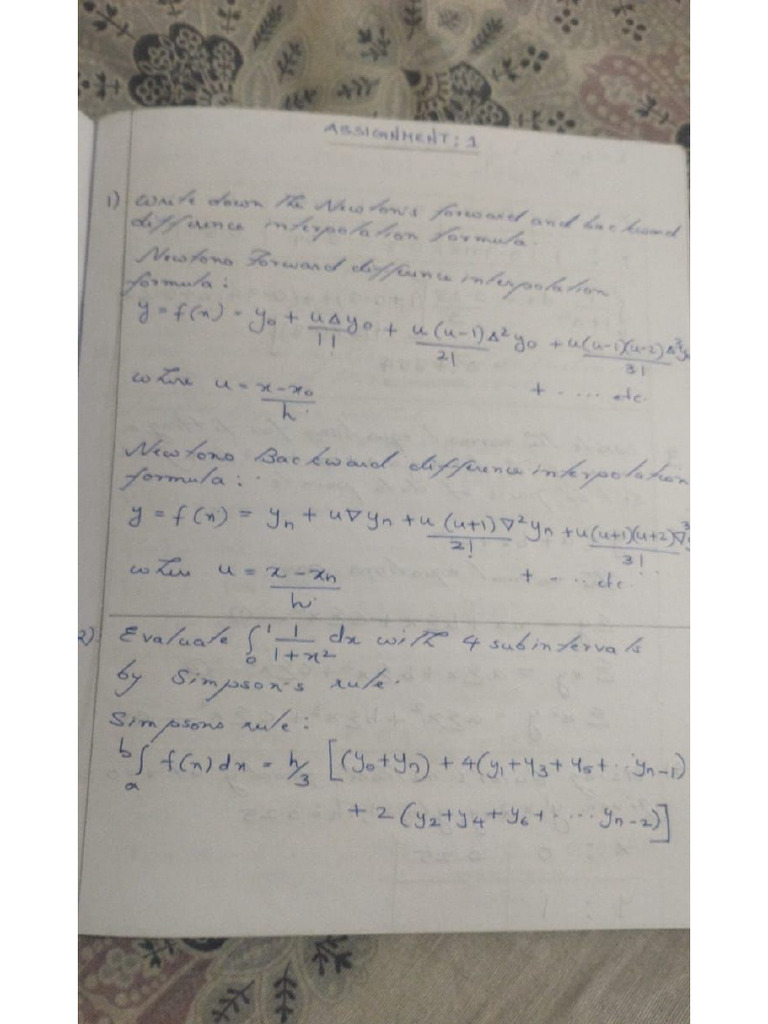 ASSIGNMENT: 1
1) Write down the Newton's forward and backward
difference interpolation formula
Newtons Forward difference interpolation
formula:
y = f(x) = y₀ + uΔy₀/1! + u(u-1)Δ²y₀/2! + u(u-1)(u-2)Δ³y₀/3!
+ .... etc.
where u = x-x₀/h
Newtons Backward difference interpolation
formula:
y = f(x) = yₙ + u∇yₙ + u(u+1)∇²yₙ/2! + u(u+1)(u+2)∇³/3!
+ ... etc
where u = x-xₙ/h
2) Evaluate ∫₀¹ 1/1+x² dx with 4 subintervals
by Simpson's rule.
Simpsons rule:
∫ₐᵇ f(x)dx = h/3 [(y₀+yₙ) + 4(y₁+y₃+y₅+...yₙ₋₁)
+ 2(y₂+y₄+y₆+....yₙ₋₂)]